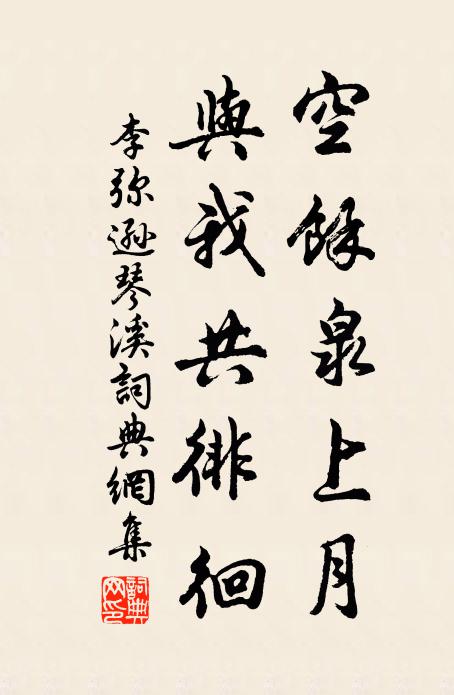 空餘泉上月
與我共徘徊
李弥遜琴溪詞典網集
詞典網印